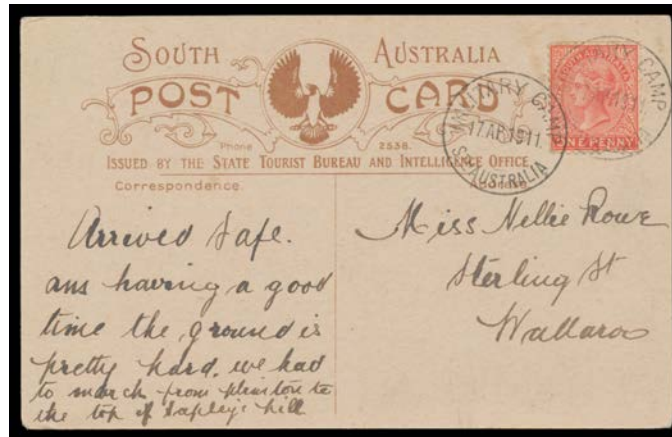 SOUTH AUSTRALIA
POST CARD
Phone 2538.
ISSUED BY THE STATE TOURIST BUREAU AND INTELLIGENCE OFFICE
Correspondence.
SOUTH AUSTRALIA
ONE PENNY
MILITARY CAMP
17 AP 1911
S. AUSTRALIA
MILITARY CAMP
Arrived Safe.
ans having a good
time the ground is
pretty hard. we had
to march from plimton to
the top of Tapleys hill
Miss Nellie Rowe
Sterling St
Wallaroo